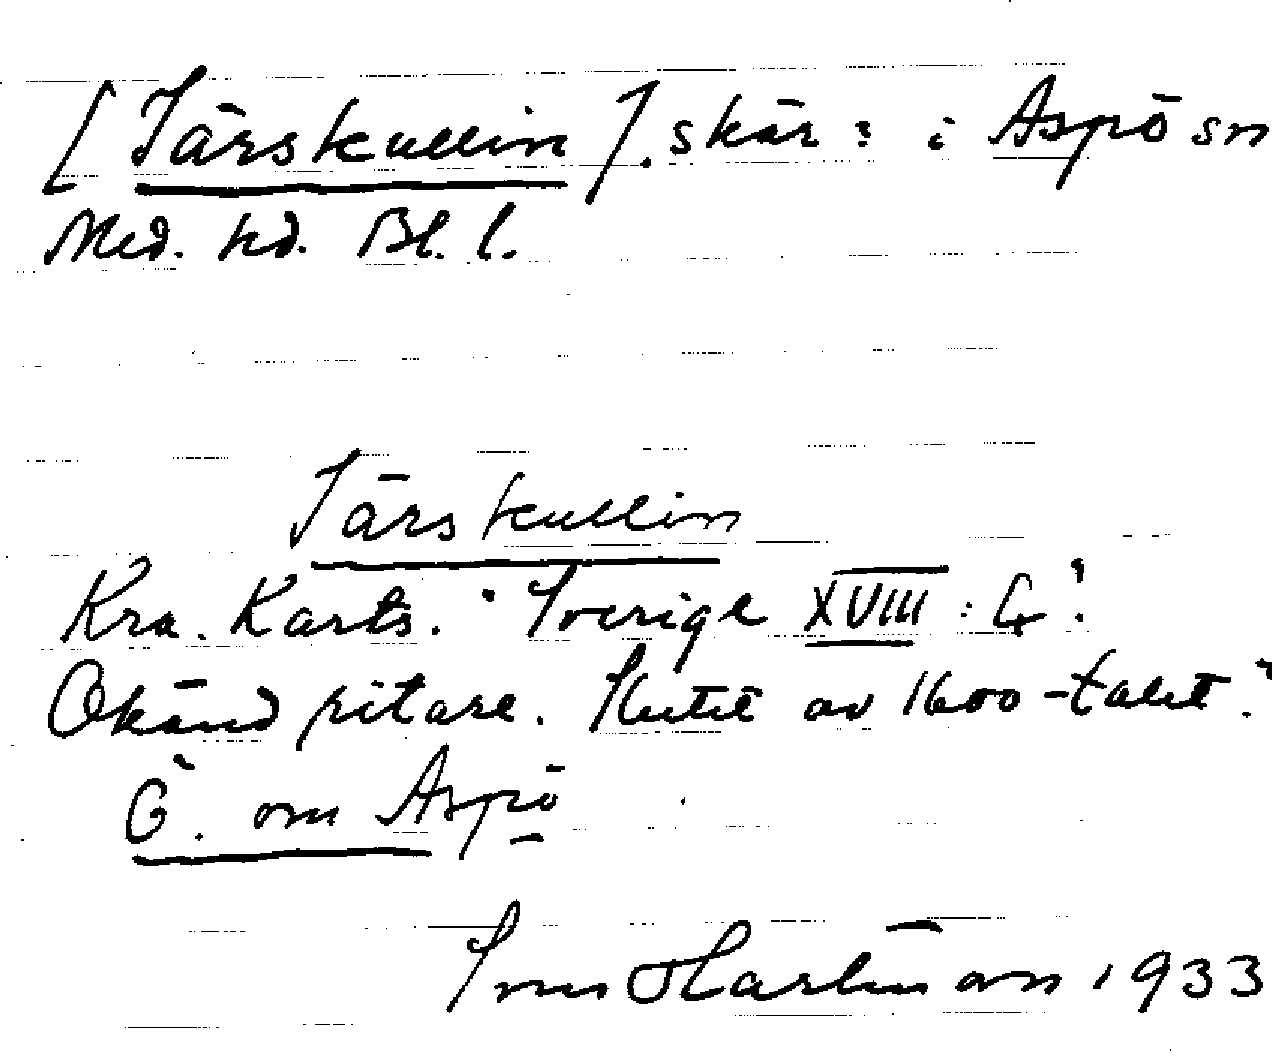 [Tärskullin]. skär: i Aspö sn
Med. hd. Bl. l.
Tärskullin
Kra. Karts. "Sverige XVIII: 4".
Okänd ritare. Slutet av 1600-talet."
Ö. om Aspö
Sven Hartman 1933